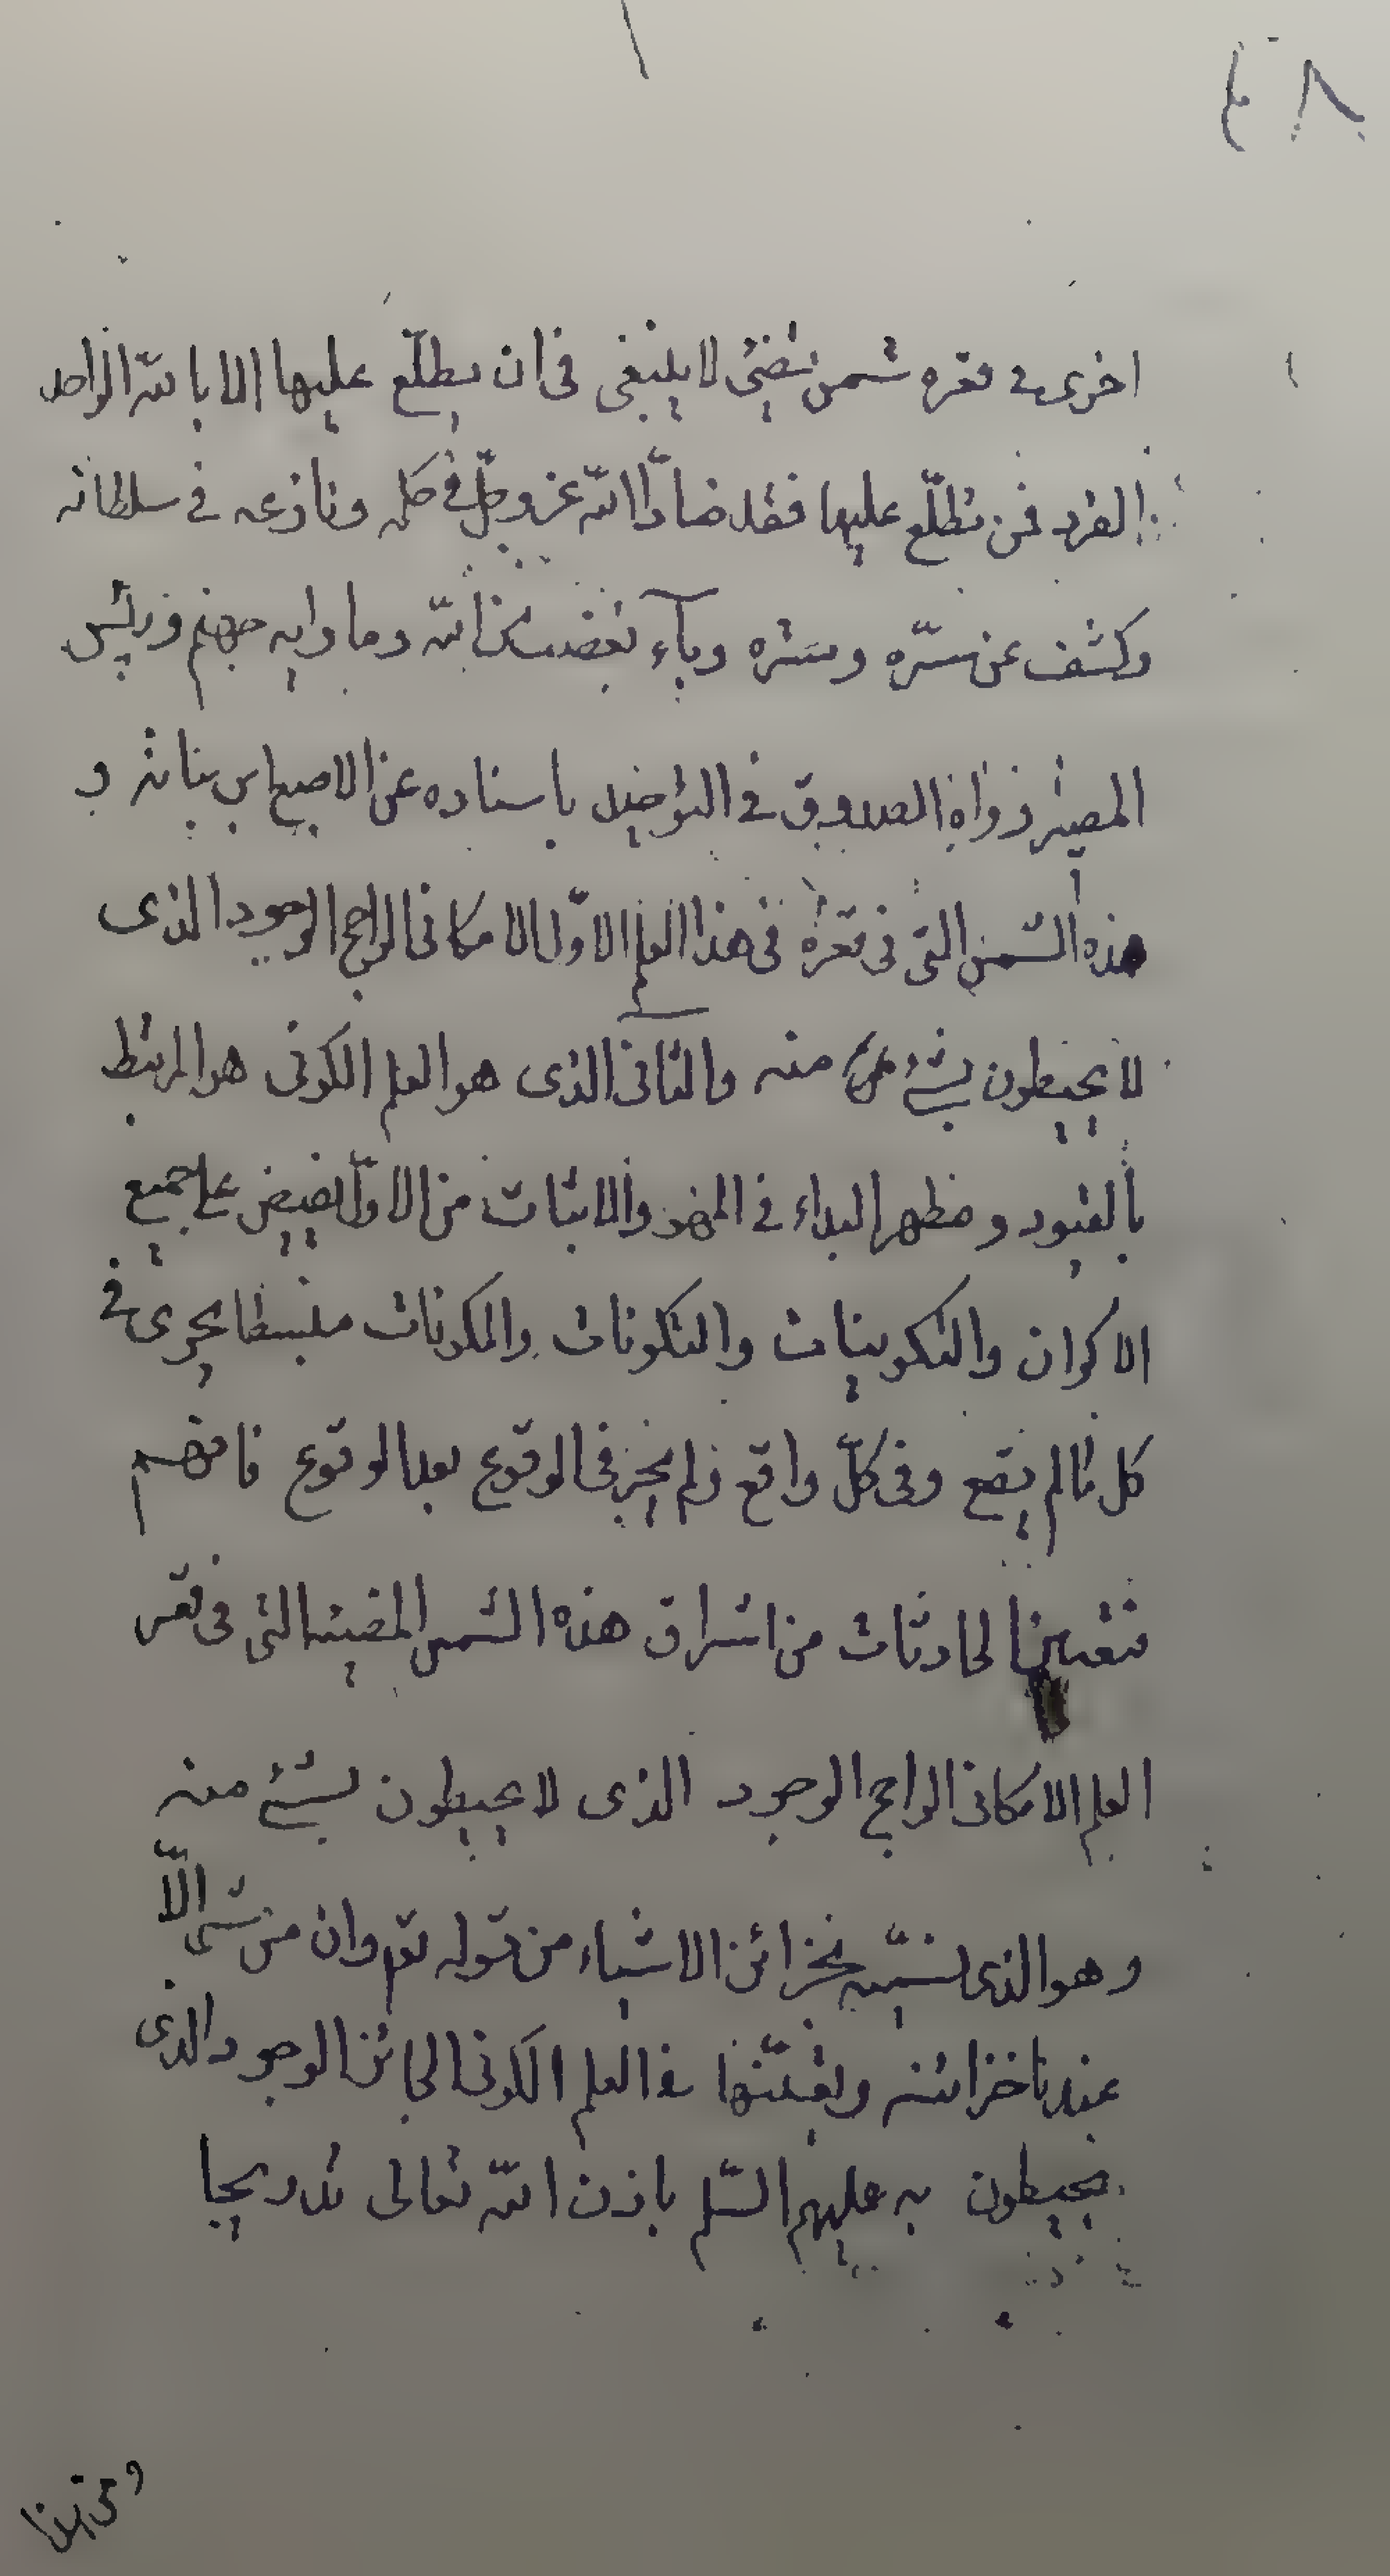 اخرى فى قعره شمس تضئ لا ينبغى فى ان يطلّع عليها الا الله الواحد
الفرد فمن تطلّع عليها فقد ضادّ الله عز وجلّ فى حكمه ونازعه فى سلطانه
وكشف عن سرّه وستره وبآء بغضب من الله وماوايه جهنم وبئس
المصير رواه الصدوق فى التوحيد باسناده عن الاصبغ بن نباتة و
هذه الشمس التى فى قعره فى هذا العلم الاوّل الامكانى الراجح الوجود الذى
لا يحيطون بشئ منه والثانى الذى هو العلم الكونى هو المرتبط
بالقيود ومظهر البداء فى المحو والاثبات من الاوّل يفيض على جميع
الاكوان والتكوينات والتكونات والمكونات منبسطا يجرى فى
كل ما لم يقع وفى كلّ واقع ولم يجز فى الوقوع بعد الوقوع فافهم
الحادثات من اشراق هذه الشمس المضيئه التى فى قعر
العلم الامكانى الراجح الوجود الذى لا يحيطون بشئ منه
وهو الذى نسمّيه بخزائن الاشياء من قوله تع وان من شئ الّا
عندنا خزائنه وتعيّنها فى العلم الكونى الجائز الوجود الذى
يحيطون به عليهم السّلم باذن الله تعالى تدريجا